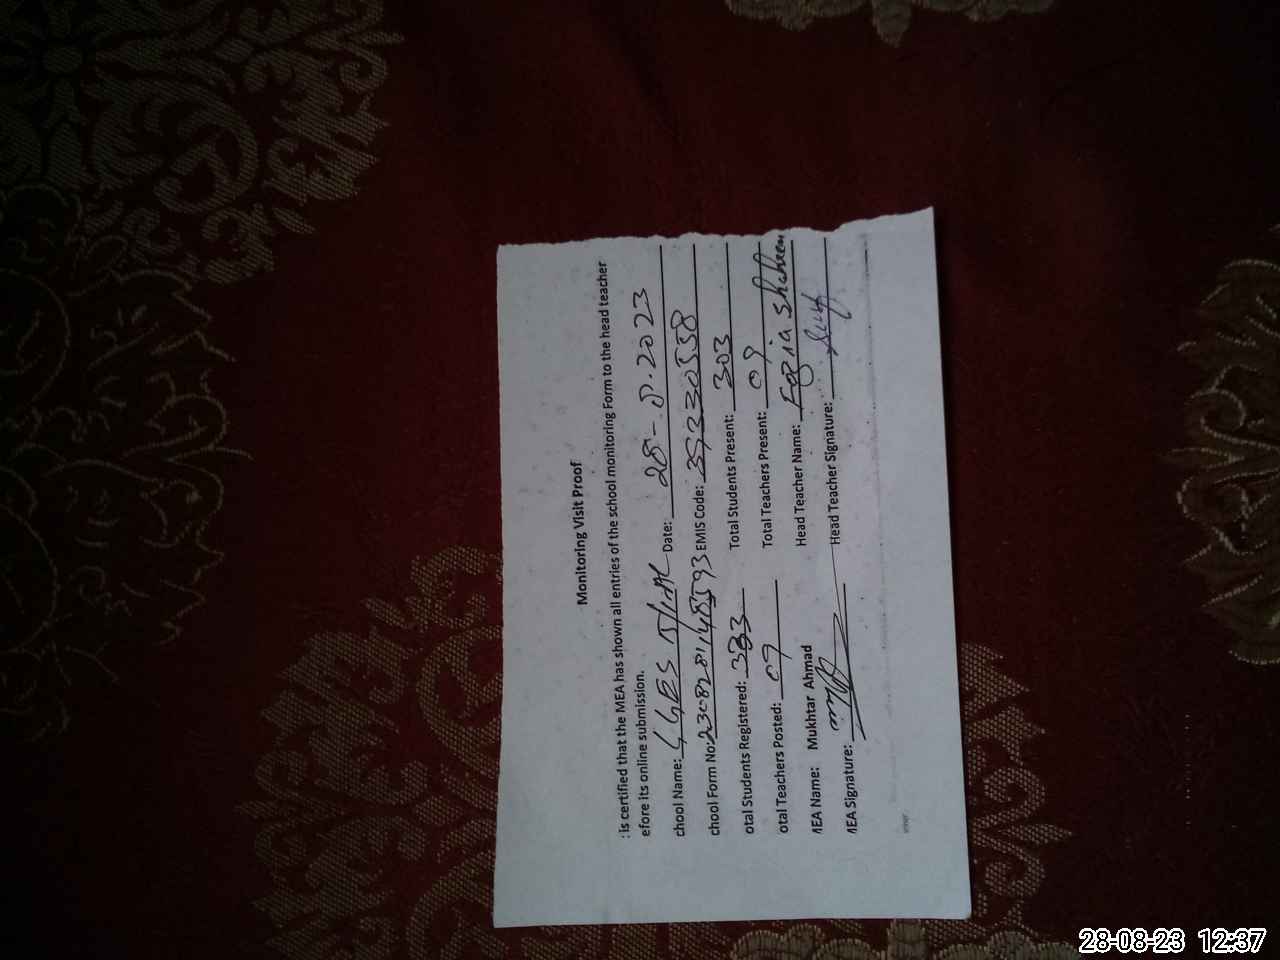 Monitoring Visit Proof
is certified that the MEA has shown all entries of the school monitoring Form to the head teacher
efore its online submission.
chool Name: GGES Date: 28-8-2023
chool Form No: 230828148593 EMIS Code: 39330558
otal Students Registered: 333 Total Students Present: 303
otal Teachers Posted: 09 Total Teachers Present: 09
MEA Name: Mukhtar Ahmad Head Teacher Name: Fozia Shaheen
MEA Signature: Head Teacher Signature:
28-08-23 12:37